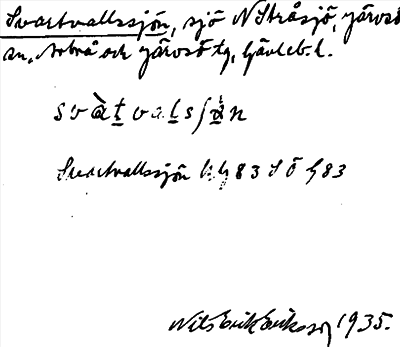 Svartvallssjön, sjö N Stråsjö, Järvsö
sn, Arbrå och Järvsö tg, Gävleb. l.
svàt val sʃön
Svartvallssjön 83 S Ö G 83
Nils Erik Eriksson 1935.